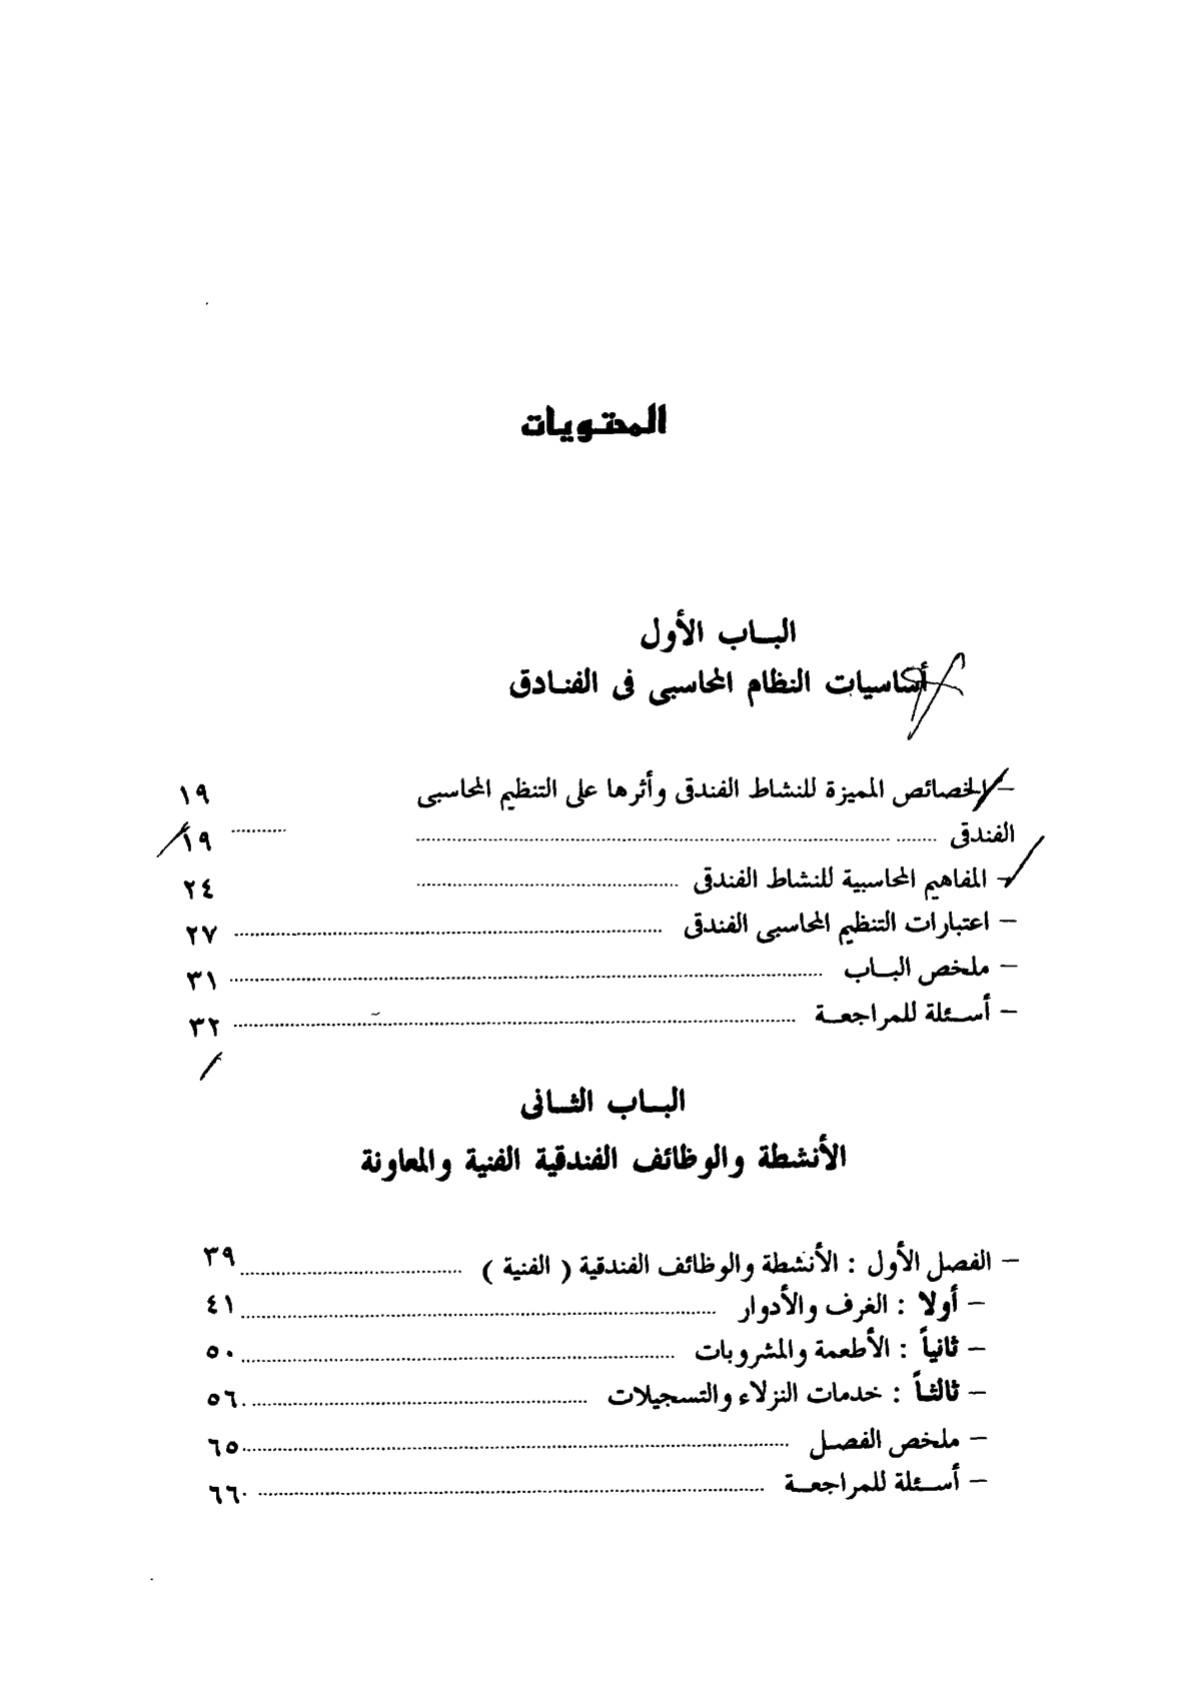 المحتويات
البـاب الأول
أساسيات النظام المحاسبى فى الفنـادق
– الخصائص المميزة للنشاط الفندقى وأثرها على التنظيم المحاسبى ١٩
الفندقى ........ ١٩
– المفاهيم المحاسبية للنشاط الفندقى ........ ٢٤
– اعتبارات التنظيم المحاسبى الفندقى ........ ٢٧
– ملخص البـاب ........ ٣١
– أسـئلة للمراجعـة ........ ٣٢
البـاب الثـانى
الأنشطة والوظائف الفندقية الفنية والمعاونة
– الفصل الأول : الأنشطة والوظائف الفندقية ( الفنية ) ........ ٣٩
– أولا : الغرف والأدوار ........ ٤١
– ثانياً : الأطعمة والمشروبات ........ ٥٠
– ثالثـاً : خدمات النزلاء والتسجيلات ........ ٥٦
– ملخص الفصـل ........ ٦٥
– أسـئلة للمراجعـة ........ ٦٦